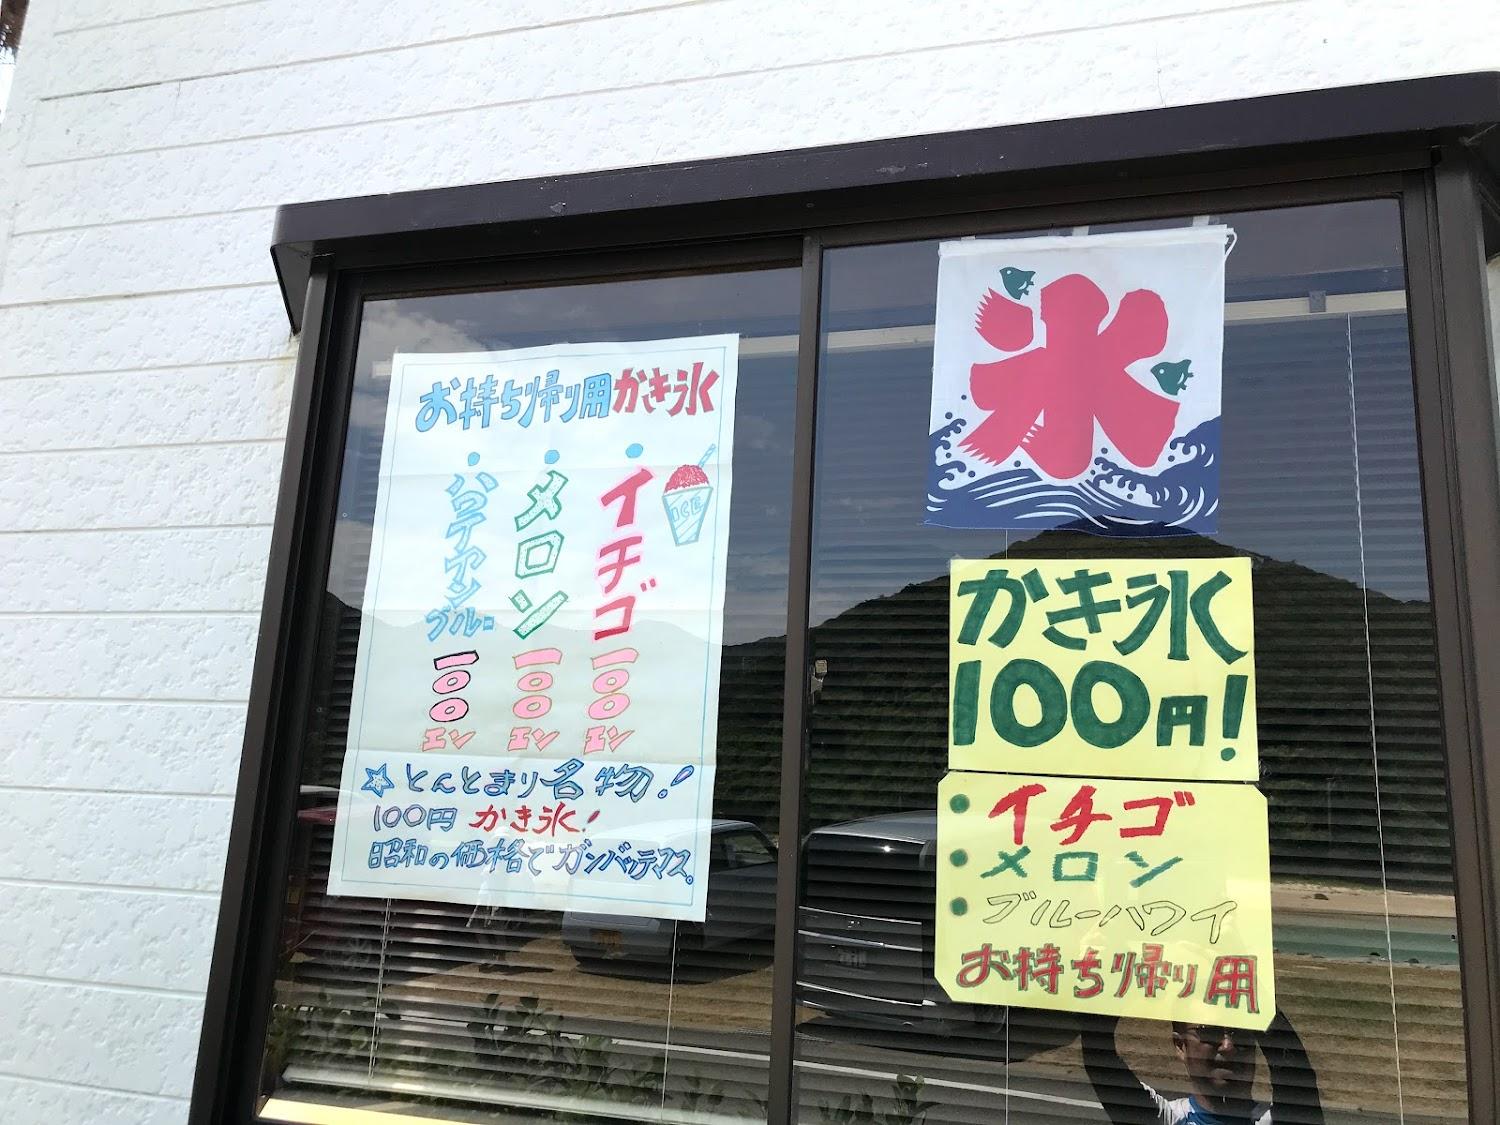 お持ち帰り用かき氷
・イチゴ 一〇〇エン
・メロン 一〇〇エン
・ハワイヤンブルー 一〇〇エン
ICE
☆とんとまり名物!
100円 かき氷!
昭和の価格でガンバッテマス。
氷
かき氷
100円!
・イチゴ
・メロン
・ブルーハワイ
お持ち帰り用